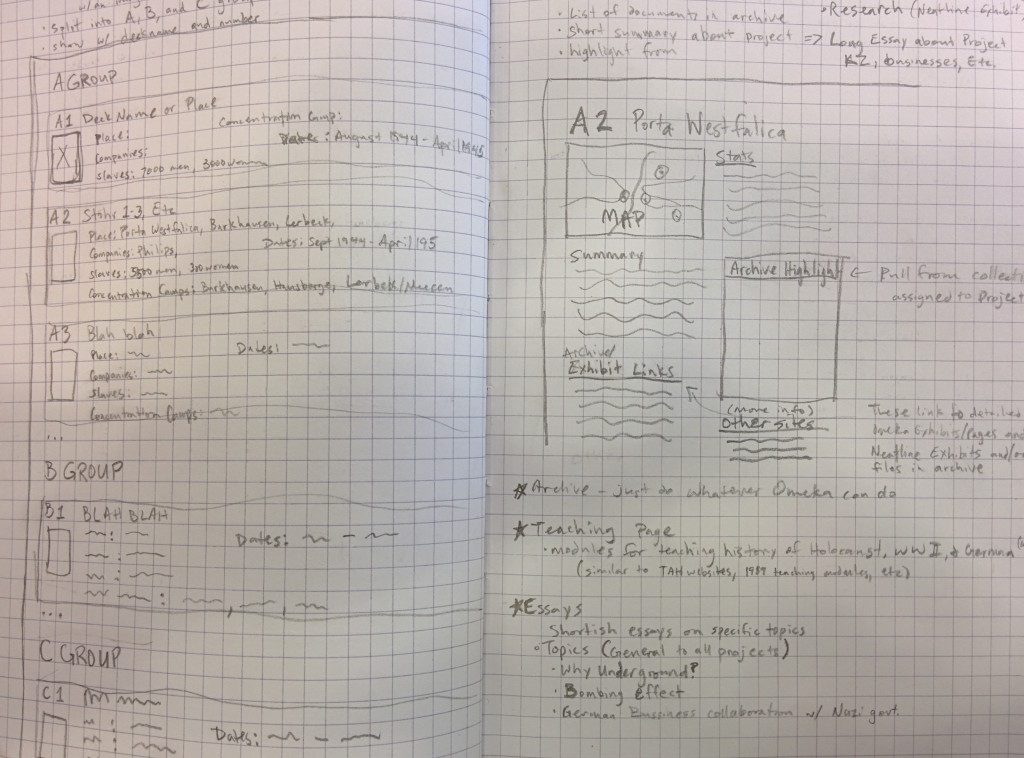 • split into A, B, and C
• show w/ deckname and number
A GROUP
A1 Deck Name or Place
Place: Concentration Camp:
Companies: Dates: August 1944 - April 1945
slaves: 7000 men, 3000 women
A2 Stöhr 1-3, Etc
Place: Porta Westfalica, Barkhausen, Lerbeck,
Companies: Philips, Dates: Sept 1944 - April 195
slaves: 5500 men, 300 women
Concentration Camps: Barkhausen, Hausberge, Lerbek/
A3 Blah blah
Place: Dates:
Companies:
Slaves:
Concentration Camps:
...
B GROUP
B1 BLAH BLAH
Dates: -
...
C GROUP
C1
Dates: -
• List of documents in archive
• Short summary about project => Long Essay about Project
• highlight from KZ, businesses, Etc.
Research (Neatline Exhibit
A2 Porta Westfalica
MAP
Stats
Summary
Archive Highlight ← Pull from collecti
assigned to Project
Archive/
Exhibit Links
(more info)
Other sites
These link to detailed
Omeka Exhibits/Pages and
Neatline Exhibits and/or
files in archive
* Archive - just do whatever Omeka can do
* Teaching Page
• modules for teaching history of Holocaust, WWII, + German
(similar to TAH websites, 1989 teaching modules, etc)
* Essays
Shortish essays on specific topics
• Topics (General to all projects)
• Why Underground?
• Bombing Effect
• German Bussiness collaboration w/ Nazi govt.